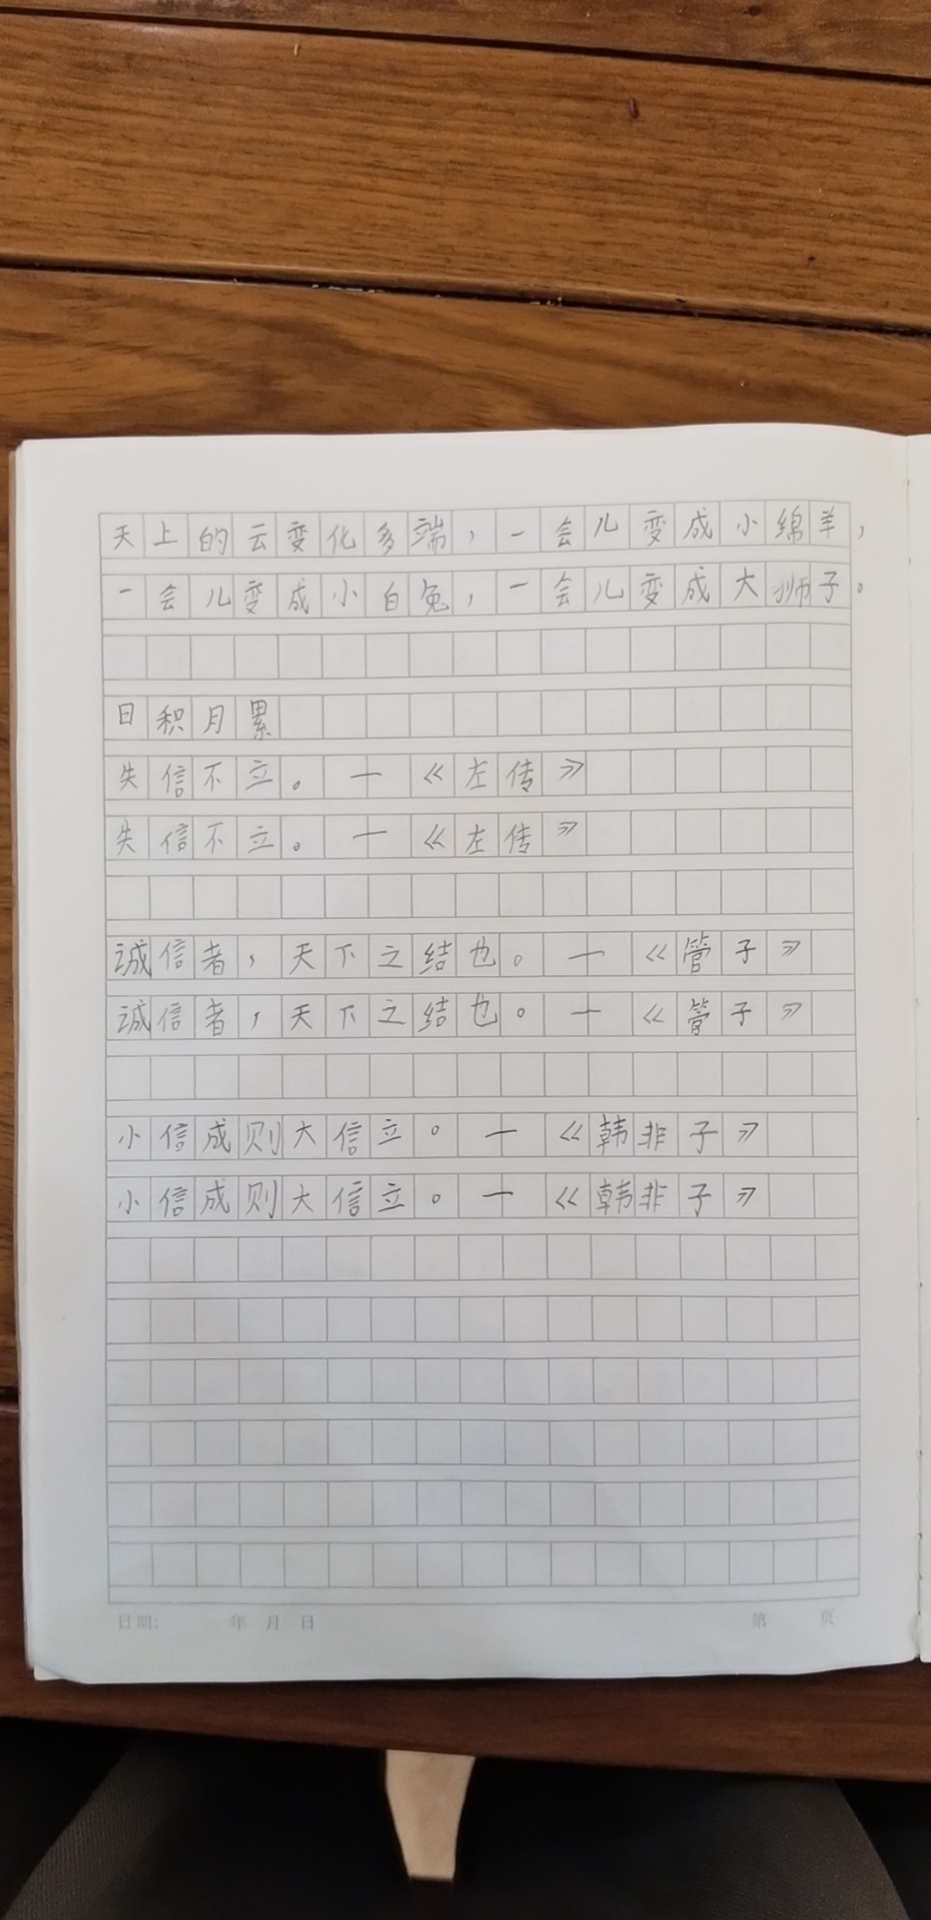 天上的云变化多端，一会儿变成小绵羊，
一会儿变成小白兔，一会儿变成大狮子。
日积月累
失信不立。—《左传》
失信不立。—《左传》
诚信者，天下之结也。—《管子》
诚信者，天下之结也。—《管子》
小信成则大信立。—《韩非子》
小信成则大信立。—《韩非子》
日期: 年 月 日 第 页